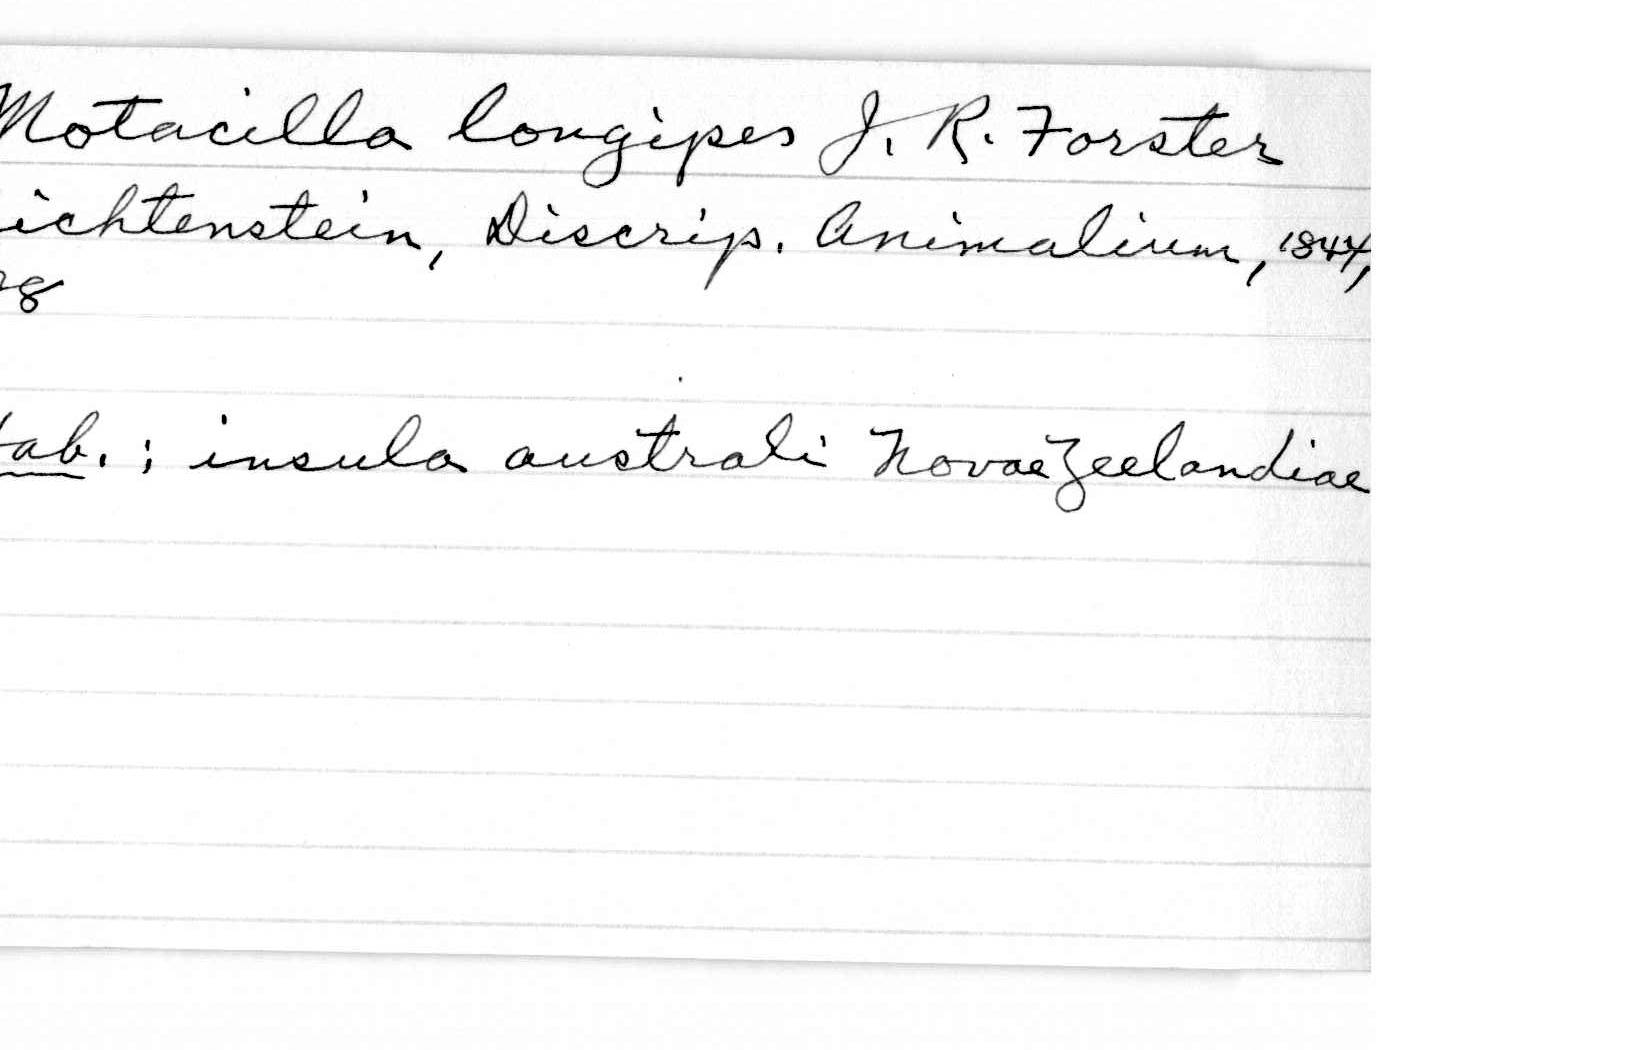 Motacilla longipes J. R. Forster
ichtenstein, Discrip. Animalium, 1844,
8
ab. ; insula australi Novae Zeelandiae